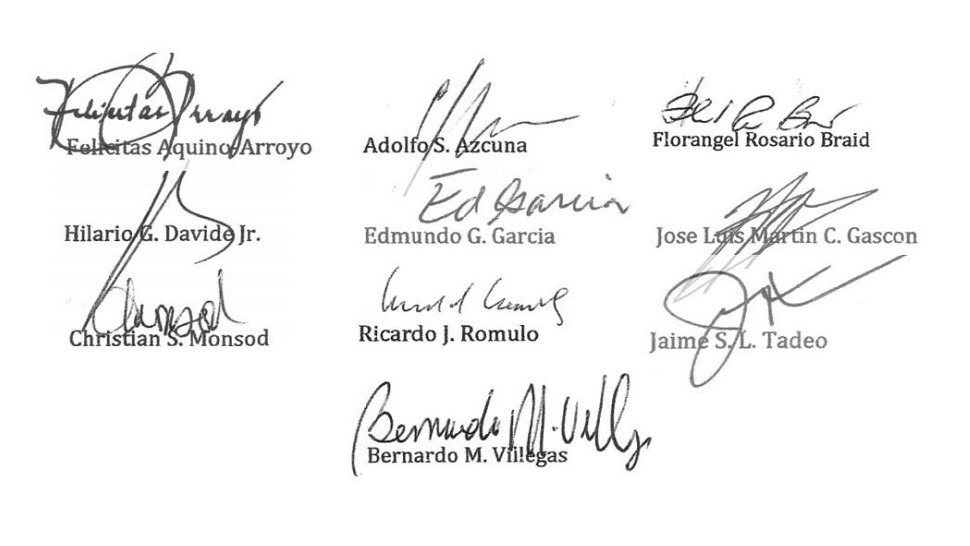 Felicitas Arroyo
Felicitas Aquino-Arroyo
Adolfo S. Azcuna
Florangel Rosario Braid
Hilario G. Davide Jr.
Ed Garcia
Edmundo G. Garcia
Jose Luis Martin C. Gascon
Cmonsod
Christian S. Monsod
Ricardo J. Romulo
Jaime S. L. Tadeo
Bernardo M. Villegas
Bernardo M. Villegas